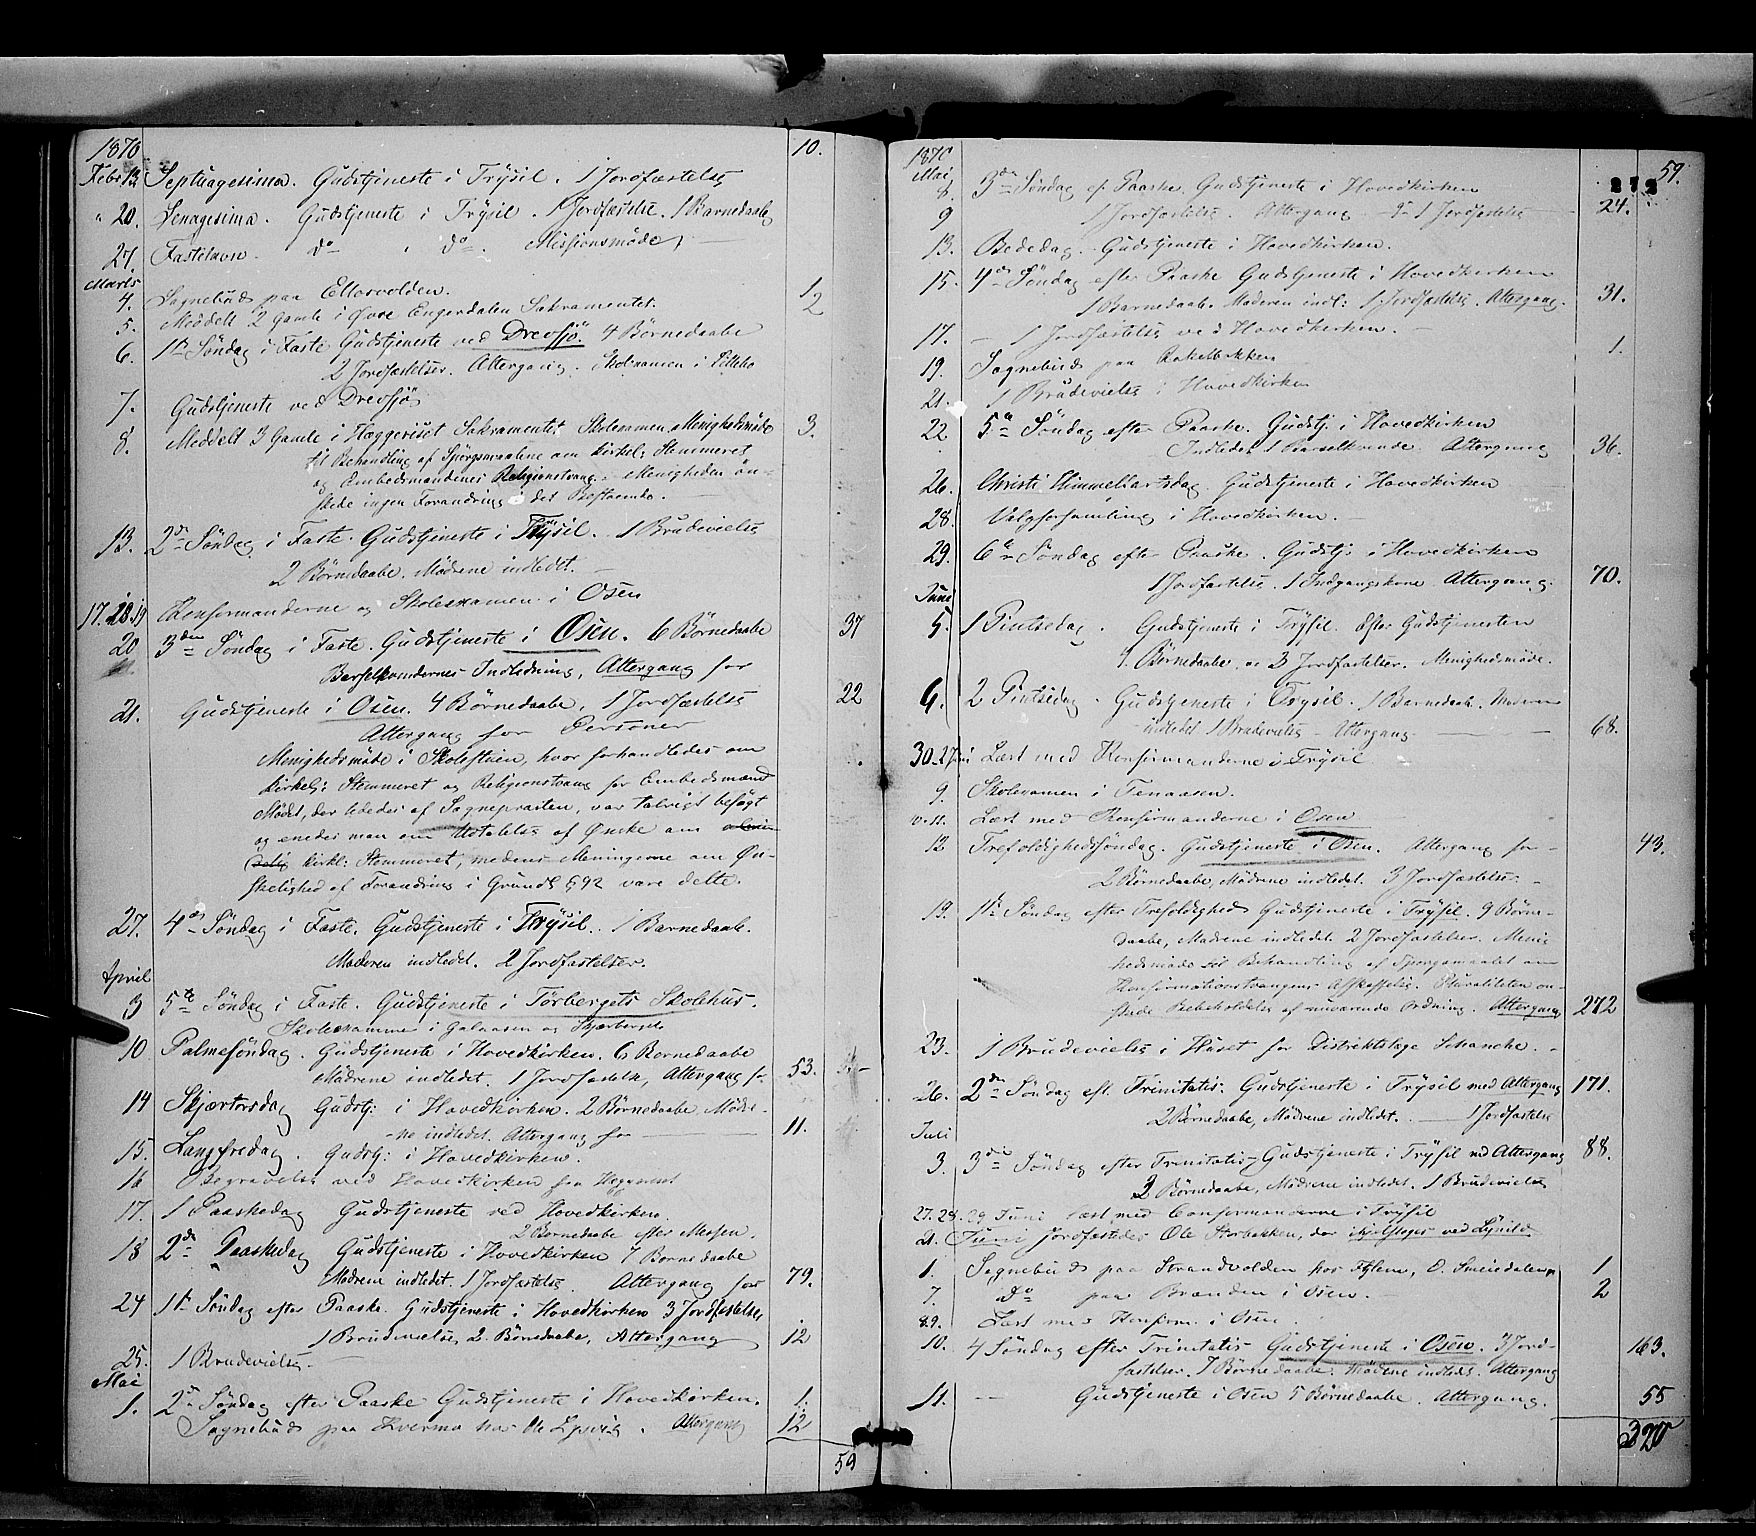 1870 10.
Febr 13. Septuagesima. Gudstjeneste i Trysil. 1 Jordfæstelse
" 20. Sexagesima. Gudstjeneste i Trysil. 1 Jordfæstelse. 1 Barnedaab
27. Fastelavn do do Missionsmøde
Marts
4. Sognebud paa Ellosvolden. 1
5. Meddelt 2 Gamle i Øvre Engerdalen Sakramentet. 2
6. 1ste Søndag i Faste Gudstjeneste ved Drevsjø. 4 Børnedaabe
2 Jordfæstelser. Altergang. Skolexamen i
7. Gudstjeneste ved Drevsjø
8. Meddelt 3 Gamle i Heggeriset Sakramentet Skolexamen, Menighedsmøde 3.
til Behandling af Spørgsmaalene om kirkel: Stemmeret
og Embedsmændenes Religionstvang. Menigheden øn-
skede ingen Forandring i det Bestaaende.
13. 2den Søndag i Faste. Gudstjeneste i Trysil. 1 Brudevielse
2 Børnedaabe. Mødrene indledet.
17. 18. 19 Konfirmanderne og Skolexamen i Osen
20 3den Søndag i Faste. Gudstjeneste i Osen. 6 Børnedaabe 37
Barselkvindernes Indledning, Altergang for
21. Gudstjeneste i Osen. 4 Børnedaabe, 1 Jordfæstelse 22
Altergang for Personer
Menighedsmøde i Skolestuen, hvor forhandledes om
kirkel: Stemmeret og Religionstvang for Embedsmænd
Mødet, der lededes af Sognepræsten, var talrigt besøgt
og enedes man om Udtalelse af Ønske om almin-
delig kirkl: Stemmeret, medens Meningerne om Øn-
skelighed af Forandring i Grundl. § 92 vare delte.
27. 4de Søndag i Faste. Gudstjeneste i Trysil. 1 Barnedaab.
Moderen indledet. 2 Jordfæstelser.
April
3 5te Søndag i Faste. Gudstjeneste i Torbergets Skolehus.
Skolexamen i Galaasen og Skjærberget
10 Palmesøndag. Gudstjeneste i Hovedkirken. 6 Børnedaabe
Mødrene indledet. 1 Jordfæstelse, Altergang for 53.
14 Skjærtorsdag Gudstj: i Hovedkirken. 2 Børnedaabe. Mødre-
ne indledet. Altergang for 11.
15. Langfredag. Gudstj: i Hovedkirken.
16 Begravelse ved Hovedkirken fra
17. 1 Paaskedag Gudstjeneste ved Hovedkirken.
2 Børnedaabe efter Messen.
18 2den Paaskedag Gudstjeneste i Hovedkirken 7 Børnedaabe
Mødrene indledet. 1 Jordfæstelse. Altergang for 79.
24 1ste Søndag efter Paaske. Gudstjeneste i Hovedkirken 3 Jordfæstelse,
1 Brudevielse, 2 Børnedaabe, Altergang 12
25. 1 Brudevielse.
Mai
1. 2den Søndag efter Paaske Gudstjeneste i Hovedkirken. 1.
Sognebud paa Kverma hos Ole. Altergang 12
59
1870 59.
Mai 272
8. 3die Søndag ef. Paaske. Gudstjeneste i Hovedkirken
9 1 Jordfæstelse. Altergang 1 Jordfæstelse 24.
13. Bededag. Gudstjeneste i Hovedkirken.
15. 4de Søndag efter Paaske Gudstjeneste i Hovedkirken
1 Barnedaab. Moderen indl: 1 Jordfæstelse. Altergang. 31.
17. - 1 Jordfæstelse ved Hovedkirken.
19. Sognebud paa Rakelbakken 1.
21. 1 Brudevielse i Hovedkirken
22 5te Søndag efter Paaske. Gudstj. i Hovedkirken
Indledet 1 Barselkvinde. Altergang 36.
26. Christi Himmelfartsdag. Gudstjeneste i Hovedkirken
28. Valgforsamling i Hovedkirken.
29. 6te Søndag efter Paaske. Gudstj: i Hovedkirken
1 Jordfæstelse. 1 Indgangskone. Altergang. 70.
Juni
5. 1 Pintsedag. Gudstjeneste i Trysil. Efter Gudstjenesten
9. Børnedaabe, og 3 Jordfæstelser. Menighedsmøde.
6. 2 Pintsedag. Gudstjeneste i Trysil. 1 Barnedaab. Moderen
indledet 1 Brudevielse. Altergang. 68.
30. 2 Juni Læst med Konfirmanderne i Trysil
9. Skolexamen i Tenaasen.
10. 11. Læst med Konfirmanderne i Osen
12 Trefoldighedssøndag. Gudstjeneste i Osen. Altergang for 43.
2 Børnedaabe, Mødrene indledet. 3 Jordfæstelser.
19. 1ste Søndag efter Trefoldighed Gudstjeneste i Trysil. 9 Børne-
daabe, Mødrene indledet. 2 Jordfæstelser. Menig
hedsmøde til Behandling af Spørgsmaalet om
Konfirmationstvangens Afskaffelse. Pluraliteten øn-
skede Beibeholdelse af nuværende Ordning. Altergang 272
23. 1 Brudevielse i Huset for Distriktslæge Schanche.
26. 2den Søndag eft. Trinitatis. Gudstjeneste i Trysil med Altergang 171.
2 Børnedaabe, Mødrene indledet. 1 Jordfæstelse
Juli
3. 3die Søndag efter Trinitatis Gudstjeneste i Trysil med Altergang 88.
3 Børnedaabe, Mødrene indledet. 1 Brudevielse
27. 28. 29 Juni læst med Confirmanderne i Trysil
21. Juni Jordfæstedes Ole Storbakken, der ihjelsloges ved Lynild.
1. Sognebud paa Strandvolden hos 1
7. Do paa Braaden i Osen. 2
8.9. Læst med Konfirm. i Osen
10. 4 Søndag efter Trinitatis Gudstjeneste i Osen. 3 Jord- 163.
fæstelser. 7 Børnedaabe. Mødrene indledet. Altergang
11. Gudstjeneste i Osen 5 Børnedaabe. Altergang. 55
320